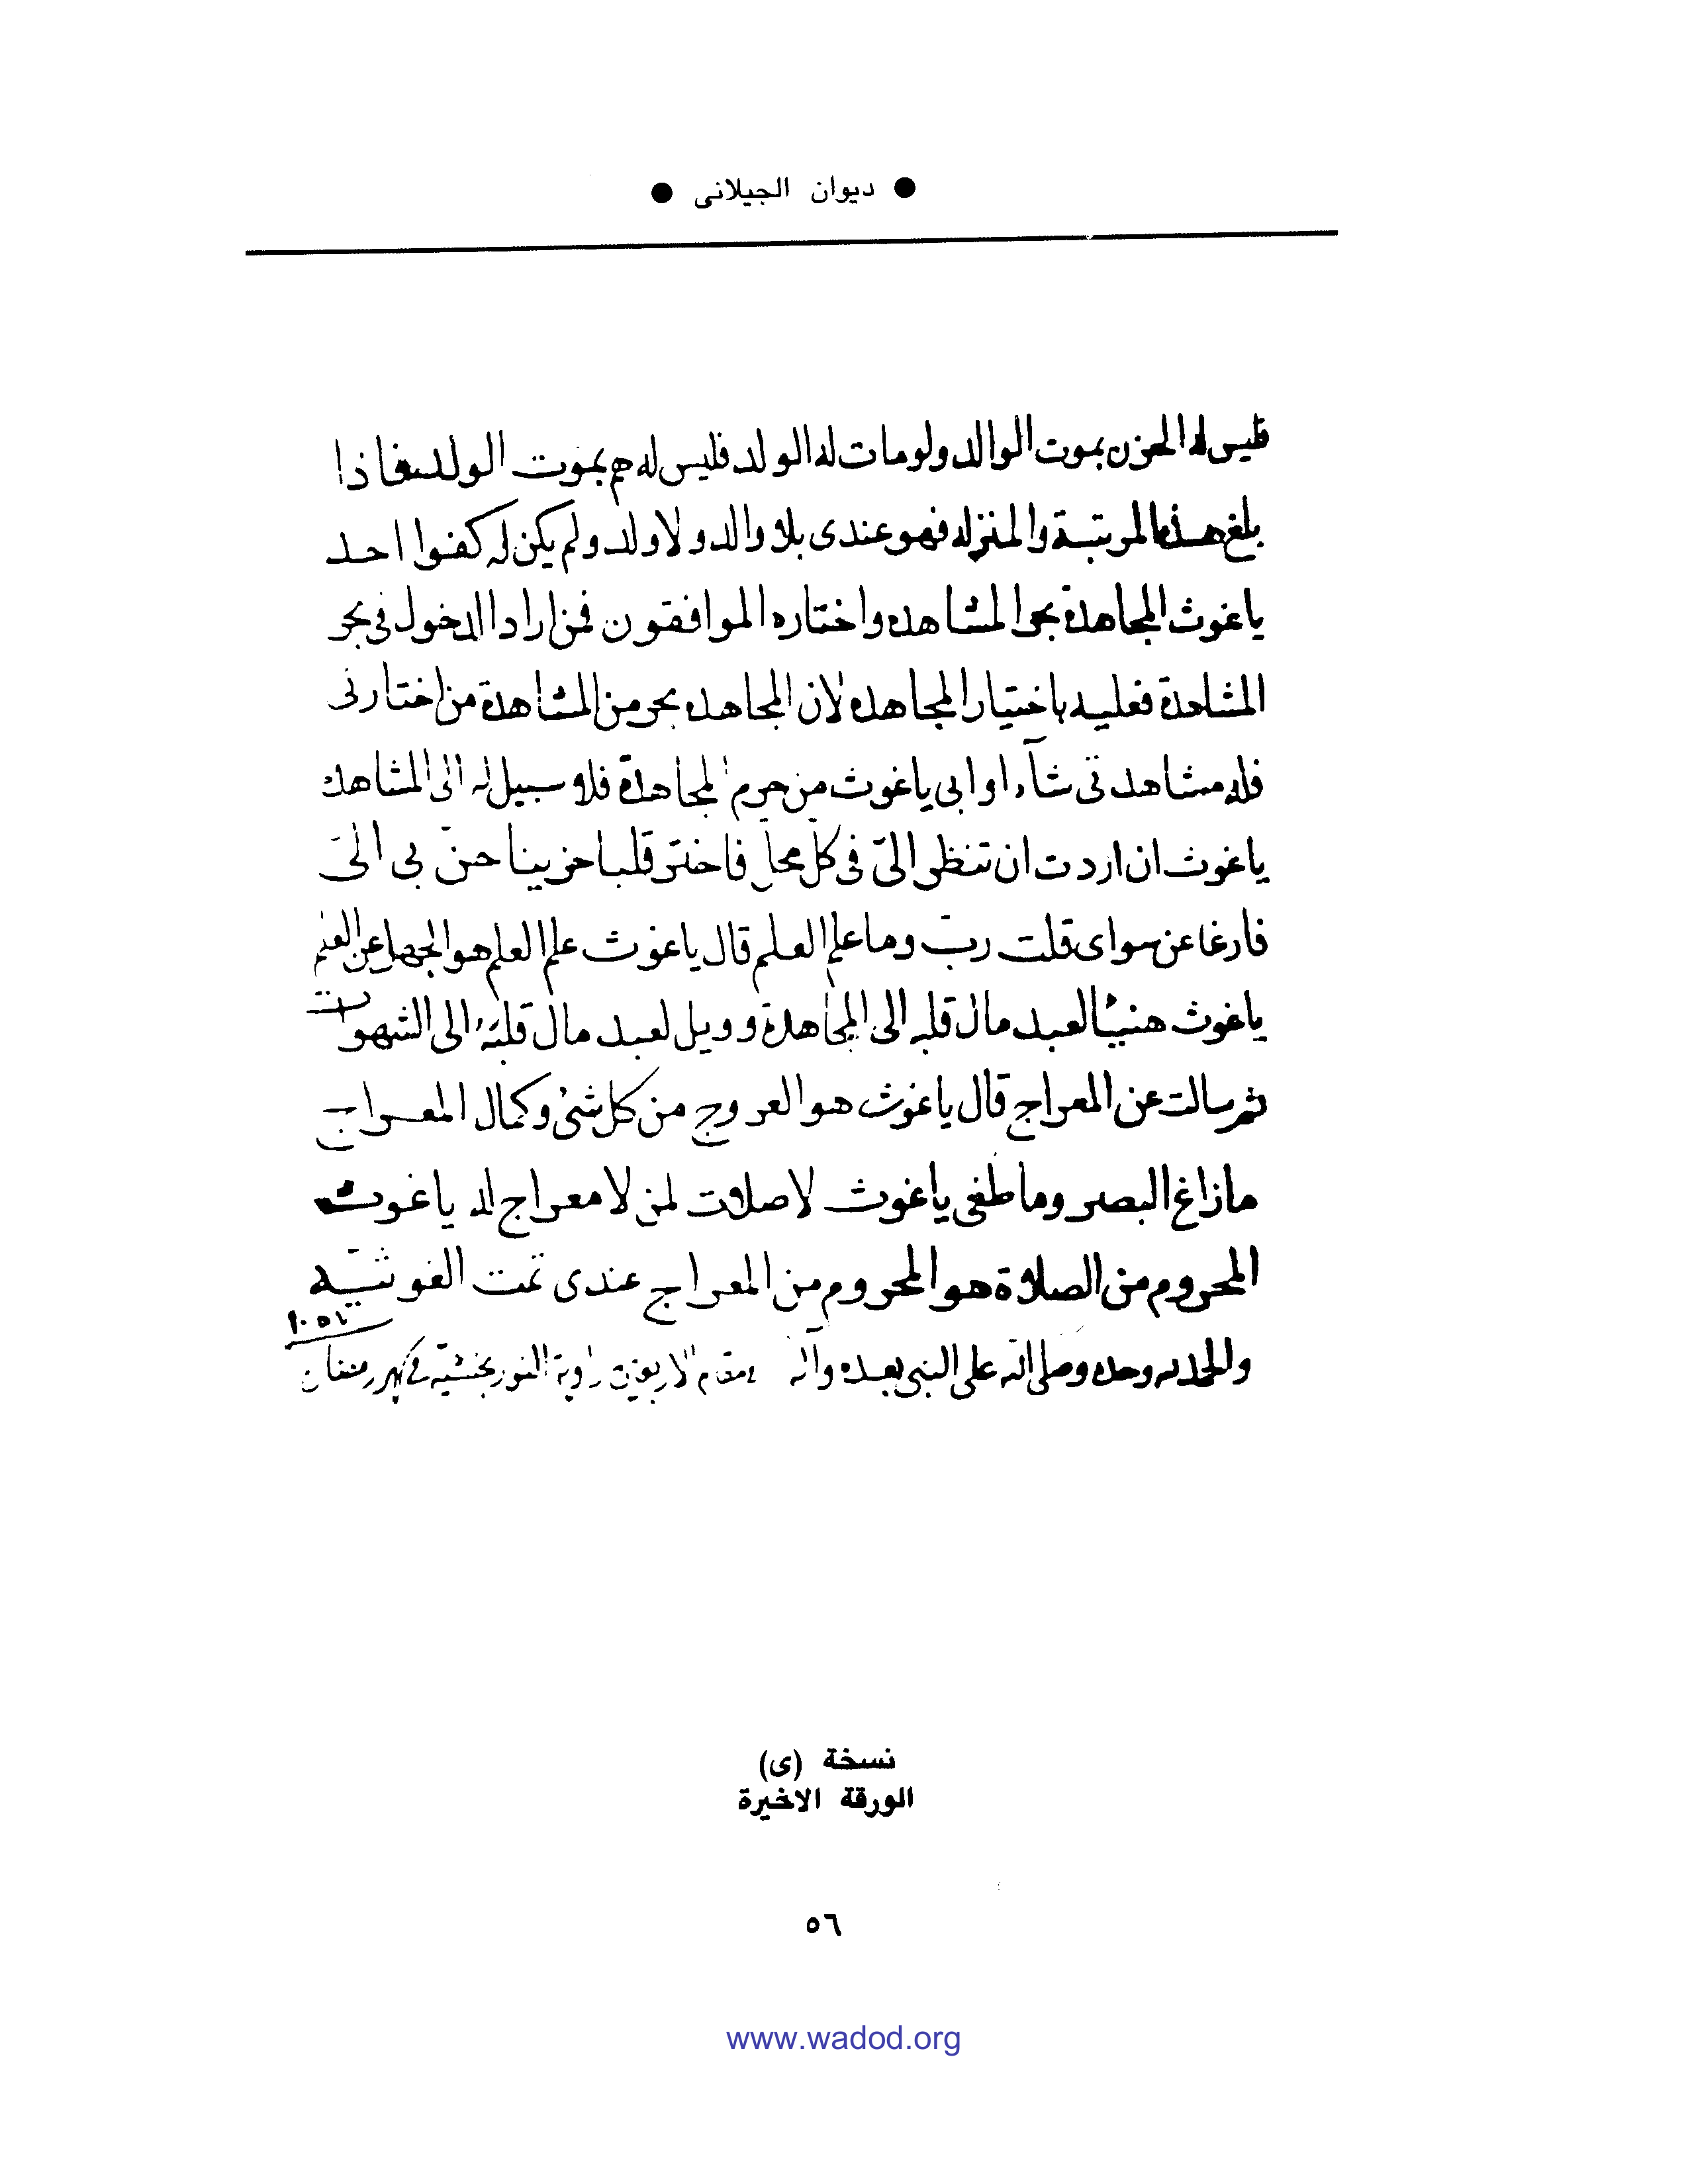 ● ديوان الجيلانى ●
فليس له الحزن بموت الوالد ولو مات له الولد فليس له هم بموت الولد فاذا
بلغ هذه المرتبة والمنزله فهو عندى بلا والد ولا ولد ولم يكن له كفوا احد
ياغوث المجاهدة بحر المشاهده واختاره الموافقون فمن اراد الدخول فى بحر
المشاهدة فعليه باختيار المجاهده لان المجاهده بحر من المشاهدة من اختارنى
فله مشاهدتى شآء او ابى ياغوث من حرم المجاهدة فلا سبيل له الى المشاهده
ياغوث ان اردت ان تنظر الىّ فى كل محل فاختر قلبا حزينا حنّ بى الىَ
فارغا عن سواى قلت ربّ وما علم العلم قال ياغوث علم العلم هو الجهل عن العلم
ياغوث هنيئا لعبد مال قلبه الى المجاهدة وويل لعبد مال قلبه الى الشهوات
ثم سالت عن المعراج قال ياغوث هو العروج من كل شئ وكمال المعراج
مازاغ البصر وما طغى ياغوث لا صلات لمن لا معراج له ياغوث
المحروم من الصلاة هو المحروم من المعراج عندى تمت الغوثيّه
١٠٥٦
والحمد لله وحده وصلى الله على النبى بعده وآله
نسخة (ى)
الورقة الاخيرة
٥٦
www.wadod.org